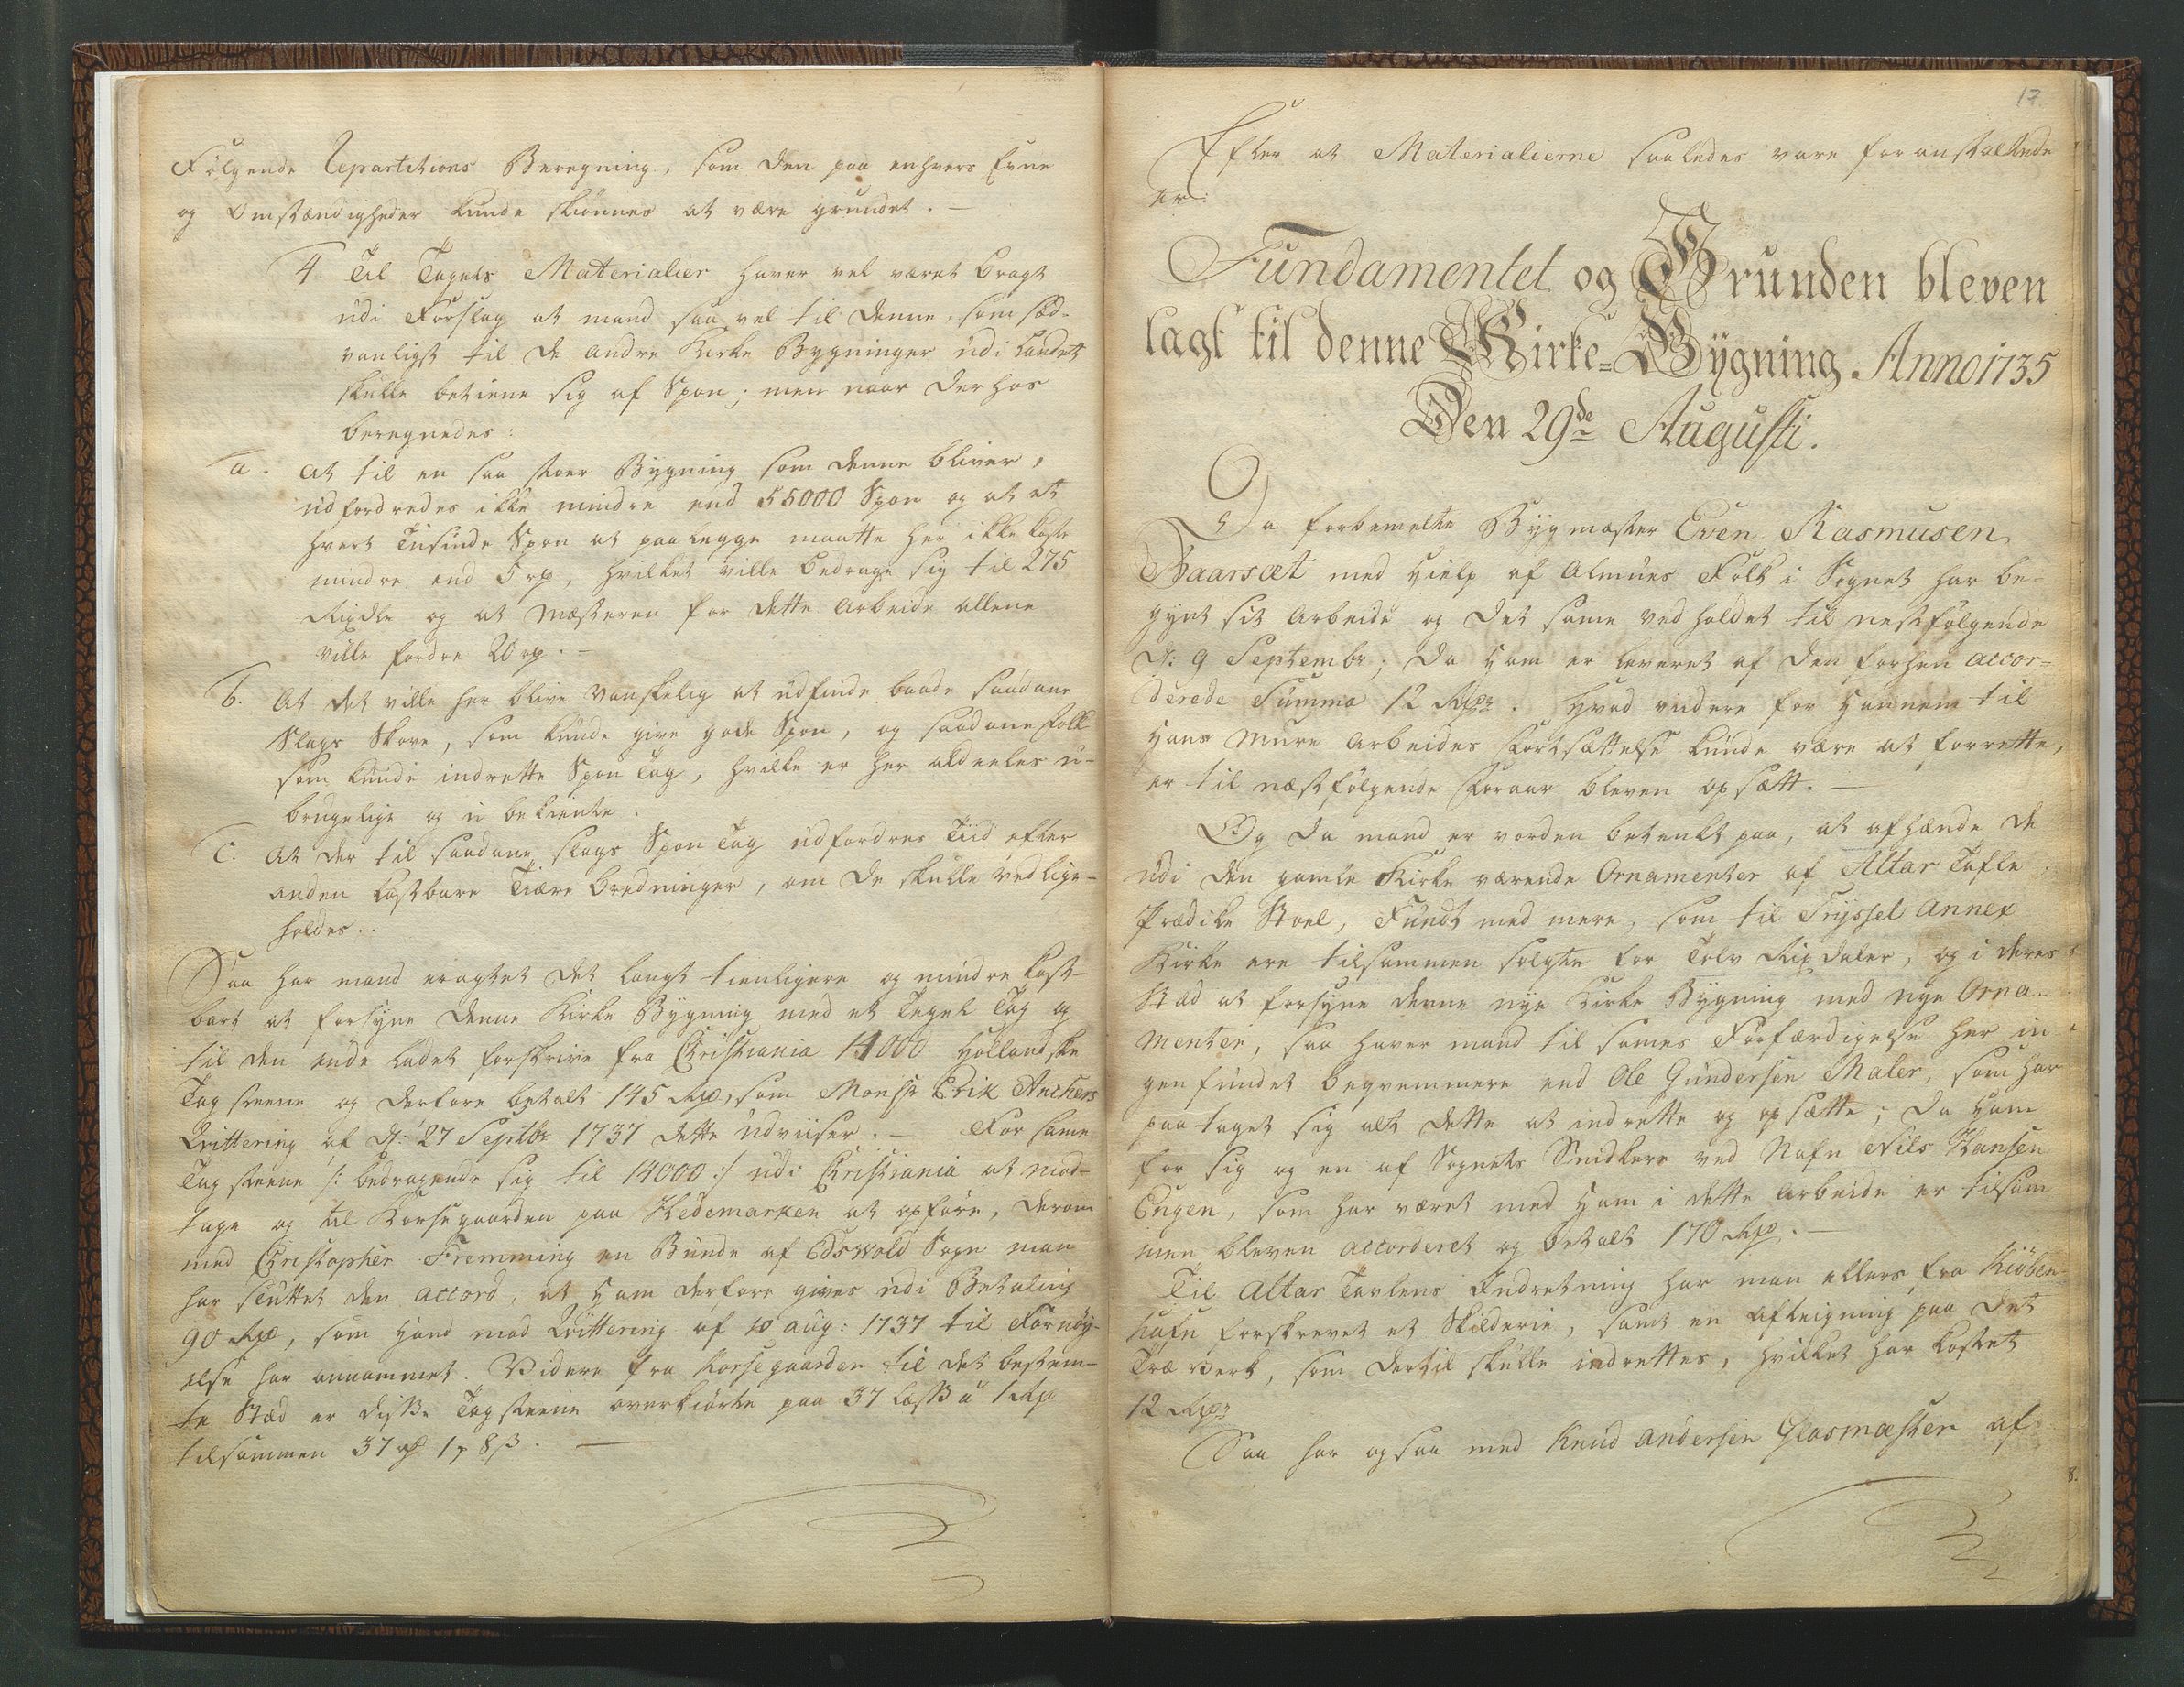 Følgende Repartitions Beregning, som den paa enhvers Evne
og Omstændigheder kunde skiønnes at være grundet. —
4 Til Tagets Materialier haver vel været bragt
udi Forslag at mand saa vel til denne, som sæd-
vanligst til de andre Kirke Bygninger udi Landet
skulle betiene sig af Spon; men naar derhos
beregnedes:
a. at til en saa stoer Bygning som denne bliver,
udfordredes ikke mindre end 55000 Spon og at et
hvert Tusinde Spon at paalegge maatte her ikke koste
mindre end 5 rd, hvilket ville bedrage sig til 275
Rixdlr og at Mesteren for dette Arbeide allene
ville fordre 20 rd. —
b. At det ville her blive vanskelig at udfinde baade saadane
Slags Skove, som kunde give gode Spon, og saadane Folk
som kunde indrette Spon Tag, hvilke er her aldeeles u-
brugelige og u bekiente.
c. At der til saadane slags Spon Tag udfordres Tiid efter
anden kostbare Tiære Bredninger, om de skulle vedlige-
holdes.
Saa har mand eragtet det langt tienligere og mindre kost-
bart at forsyne denne Kirke Bygning med et Tegel Tag og
til den ende ladet forskrive fra Christiania 14000 Hollandske
Tagsteene og derfore betalt 145 Rd, som Monsr Erik Anchers
Qvittering af D: 27 Septbr 1737 dette udviiser. — For same
Tagsteene /: bedragende sig til 14000 :/ udi Christiania at mod-
tage og til Korsegaarden paa Hedemarken at opføre, derom
med Christopher Fremming en Bunde af Edswold Sogn man
har sluttet den accord, at ham derfore gives udi Betaling
90 Rd, som hand mod Qvittering af 10 aug: 1737 til Fornøy-
else har annammet. Videre fra Korsegaarden til det bestem-
te Stæd er disse Tagsteene overkiørte paa 37 Læss a 1 Rd
tilsammen 37 rd 1 8 ß. —
17
Efter at Materialierne saaledes vare foranstaltede
er:
Fundamentet og Grunden bleven
lagt til denne Kirke=Bygning. Anno 1735
Den 29de Augusti.
Da forbemelte Bygmæster Even Rasmusen
Baarsæt med Hielp af Almues Folk i Sognet har be-
gynt sit Arbeide og det same ved holdet til nestfølgende
D: 9 Septembr; da ham er leveret af den forhen accor=
derede Summa 12 Rdr. Hvad viidere for hannem til
Hans Mure Arbeides Fortsættelse kunde være at forrette,
er til næstfølgende Foraar bleven opsætt. —
Og da mand er vorden betenkt paa, at afhænde de
udi den gamle Kirke værende Ornamenter af Altar Tafle,
Prædike Stoel, Fundt med mere, som til Tryssel Annex
Kirke ere tilsammen solgte for Tolv Rixdaler, og i deres
Stæd at forsyne denne nye Kirke Bygning med nye Orna-
menter, saa haver mand til sames Forfærdigelse her in-
gen fundet beqvemmere end Ole Gundersen Maler, som har
paataget sig alt dette at indrette og opsætte; da ham
for sig og en af Sognets Snidkere ved Nafn Nils Hansen
Engen, som har været med ham i dette Arbeide er tilsam
men bleven accorderet og betalt 170 Rd. —
Til Altar Tavlens Indretning har man ellers fra Kiøben-
hafn forskrevet et Skilderie, samt en Afteigning paa det
Træ Verk, som dertil skulle indrettes, hvilket har kostet
12 Rdr
Saa har ogsaa med Knud Andersen Glasmæster af